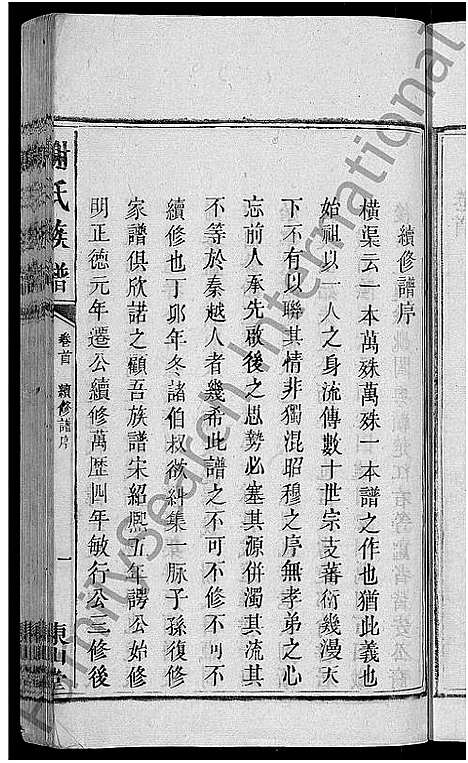 續修譜序
橫渠云一本萬殊萬殊一本譜之作也猶此義也
始祖以一人之身流傳數十世宗支蕃衍幾漫天
下不有以聯其情非獨混昭穆之序無孝弟之心
忘前人承先啟後之思勢必塞其源併濁其流其
不等於秦越人者幾希此譜之不可不修不可不
續修也丁邜年冬諸伯叔欲糾集一脉子孫復修
家譜俱欣諾之顧吾族譜宋紹興五年諤公始修
明正德元年遷公續修萬歷四年敏行公三修後
謝氏族譜
卷首
續修譜序
一
東山堂
FamilySearch International